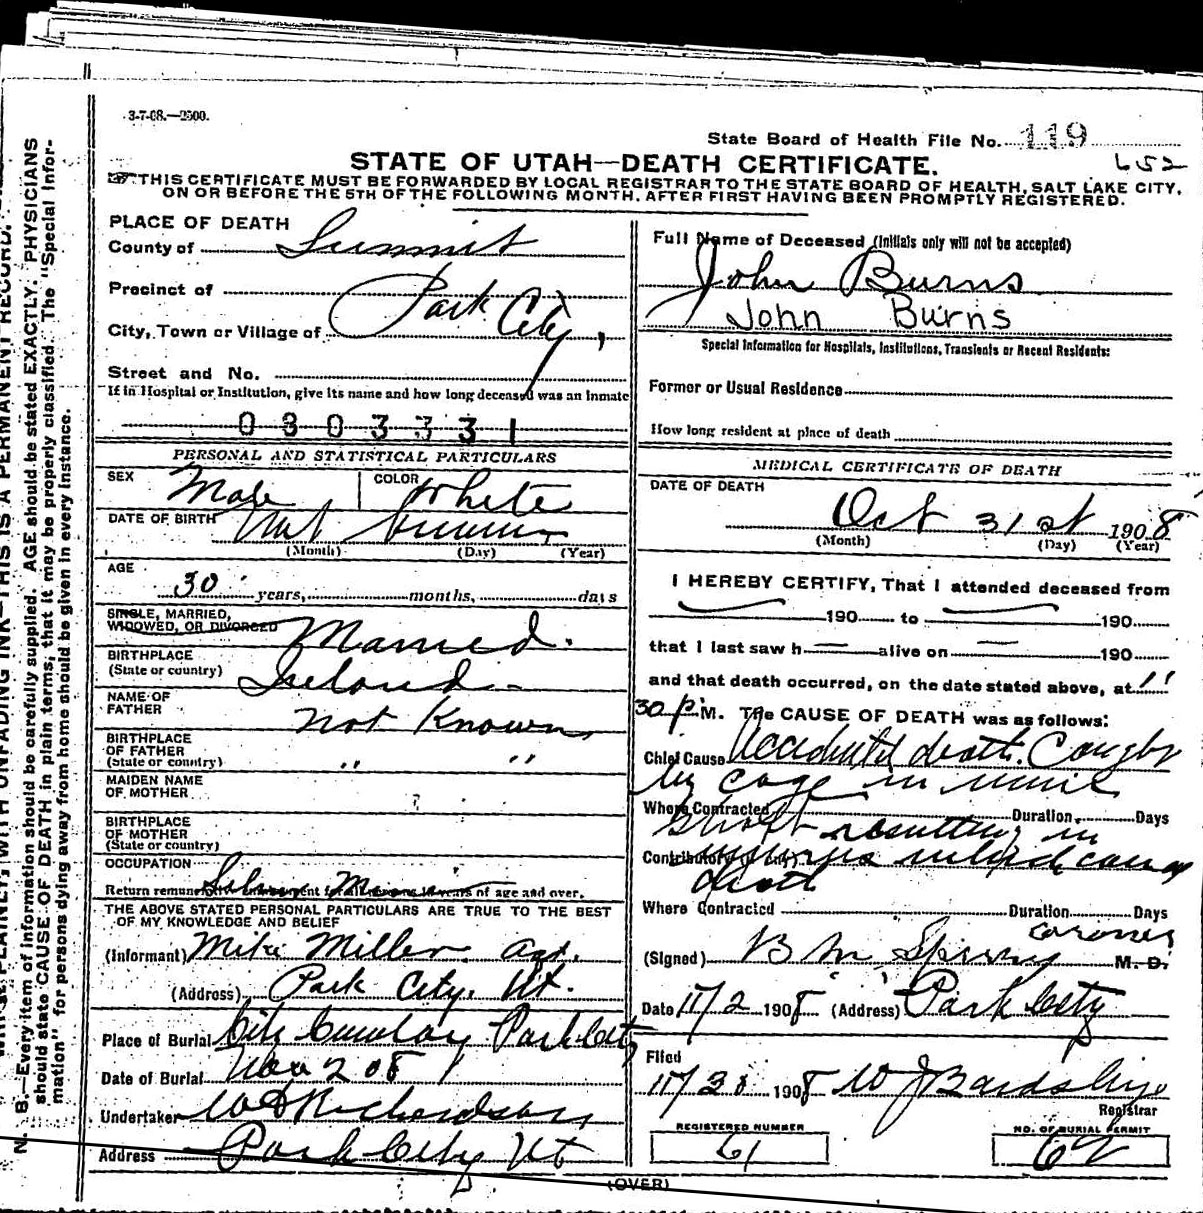 3-7-08.—2500.
State Board of Health File No. 119
652
STATE OF UTAH—DEATH CERTIFICATE.
THIS CERTIFICATE MUST BE FORWARDED BY LOCAL REGISTRAR TO THE STATE BOARD OF HEALTH, SALT LAKE CITY,
ON OR BEFORE THE 5TH OF THE FOLLOWING MONTH, AFTER FIRST HAVING BEEN PROMPTLY REGISTERED.
PLACE OF DEATH
County of Summit
Precinct of
Park City,
City, Town or Village of
Street and No.
If in Hospital or Institution, give its name and how long deceased was an Inmate
0 3 0 3 3 3 1
PERSONAL AND STATISTICAL PARTICULARS
SEX Male COLOR White
DATE OF BIRTH Not known
(Month) (Day) (Year)
AGE
30 years, months, days
SINGLE, MARRIED,
WIDOWED, OR DIVORCED Married.
BIRTHPLACE
(State or country) Ireland
NAME OF
FATHER not Known
BIRTHPLACE
OF FATHER
(State or country) " "
MAIDEN NAME
OF MOTHER ?
BIRTHPLACE
OF MOTHER
(State or country)
OCCUPATION
Return of age and over.
THE ABOVE STATED PERSONAL PARTICULARS ARE TRUE TO THE BEST
OF MY KNOWLEDGE AND BELIEF
(Informant) Mike Miller. agt.
(Address) Park City, Ut.
Place of Burial City Park City
Date of Burial Nov 2 08
Undertaker W D Richardson
Address Park City Ut
Full Name of Deceased (Initials only will not be accepted)
John Burns
John Burns
Special Information for Hospitals, Institutions, Transients or Recent Residents:
Former or Usual Residence
How long resident at place of death
MEDICAL CERTIFICATE OF DEATH
DATE OF DEATH
Oct 31st 1908
(Month) (Day) (Year)
I HEREBY CERTIFY, That I attended deceased from
190 to 190
that I last saw h alive on 190
and that death occurred, on the date stated above, at 11
30 P. M. The CAUSE OF DEATH was as follows:
Chief Cause Accidental death. Caught
by cage in mine
Where Contracted Duration Days
resulting in
Contributory
death
Where Contracted Duration Days
Coroner
(Signed) M. D.
Date 11/2 1908 (Address) Park City
Filed
11/30 1908 W J Bardsley
Registrar
REGISTERED NUMBER
61
NO. OF BURIAL PERMIT
62
(OVER)
N. B.—Every item of information should be carefully supplied. AGE should be stated EXACTLY. PHYSICIANS
should state CAUSE OF DEATH in plain terms, that it may be properly classified. The "Special Infor-
mation" for persons dying away from home should be given in every instance.